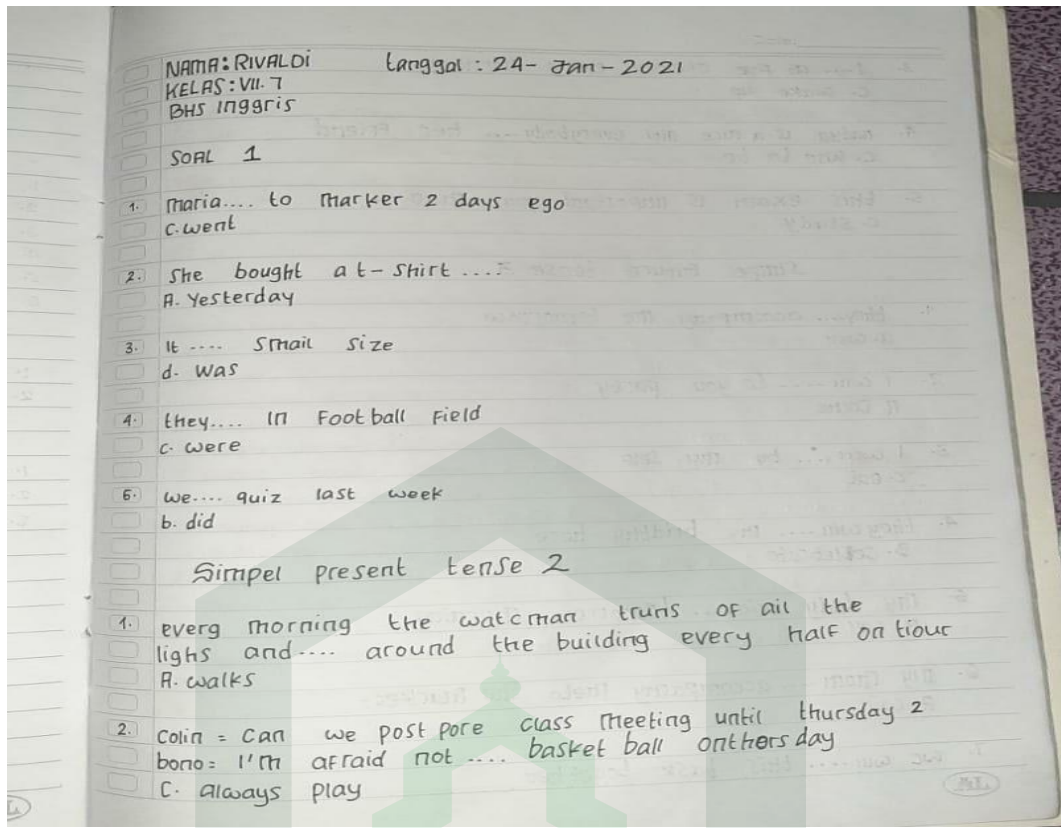 NAMA: RIVALDI tanggal : 24- Jan - 2021
KELAS: VII. 7
BHS inggris
SOAL 1
1. maria.... to marker 2 days ego
C. went
2. She bought a t-shirt ....
A. Yesterday
3. It .... Smail size
d. was
4. they.... in Foot ball Field
C. were
5. we.... quiz last week
b. did
Simpel present tense 2
1. everg morning the watcman truns of ail the
lighs and.... around the building every half on tiour
A. walks
2. Colin = Can we post pore class meeting until thursday 2
bono = I'm afraid not .... basket ball onthors day
C. always play